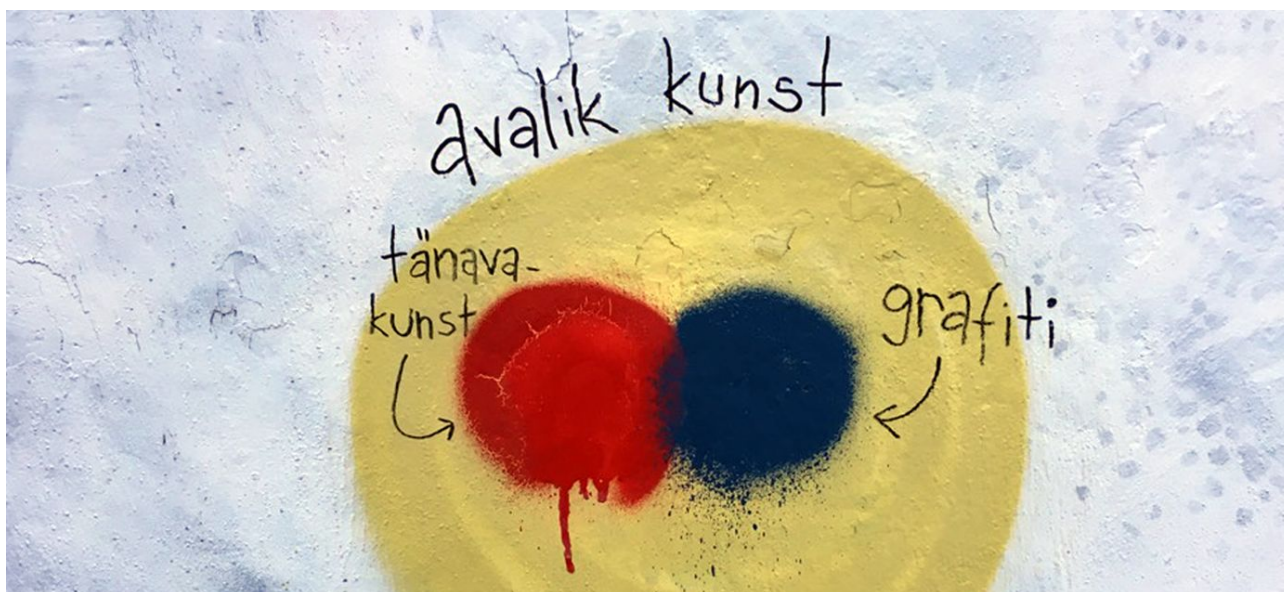 avalik kunst
tänava-
kunst
grafiti